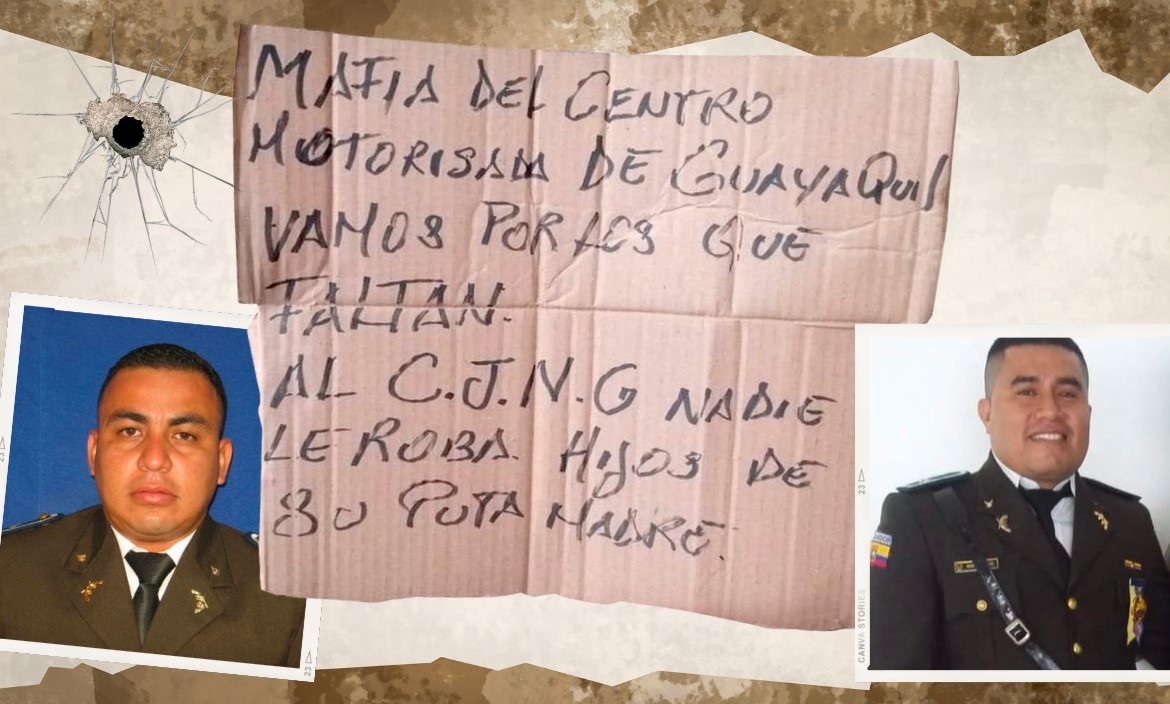 MAFIA DEL CENTRO
MOTORISADA DE GUAYAQUIL
VAMOS POR LOS QUE
FALTAN.
AL C.J.N.G NADIE
LE ROBA. HIJOS DE
SU PUTA MADRE.
23
23
23
CANVA STORIES